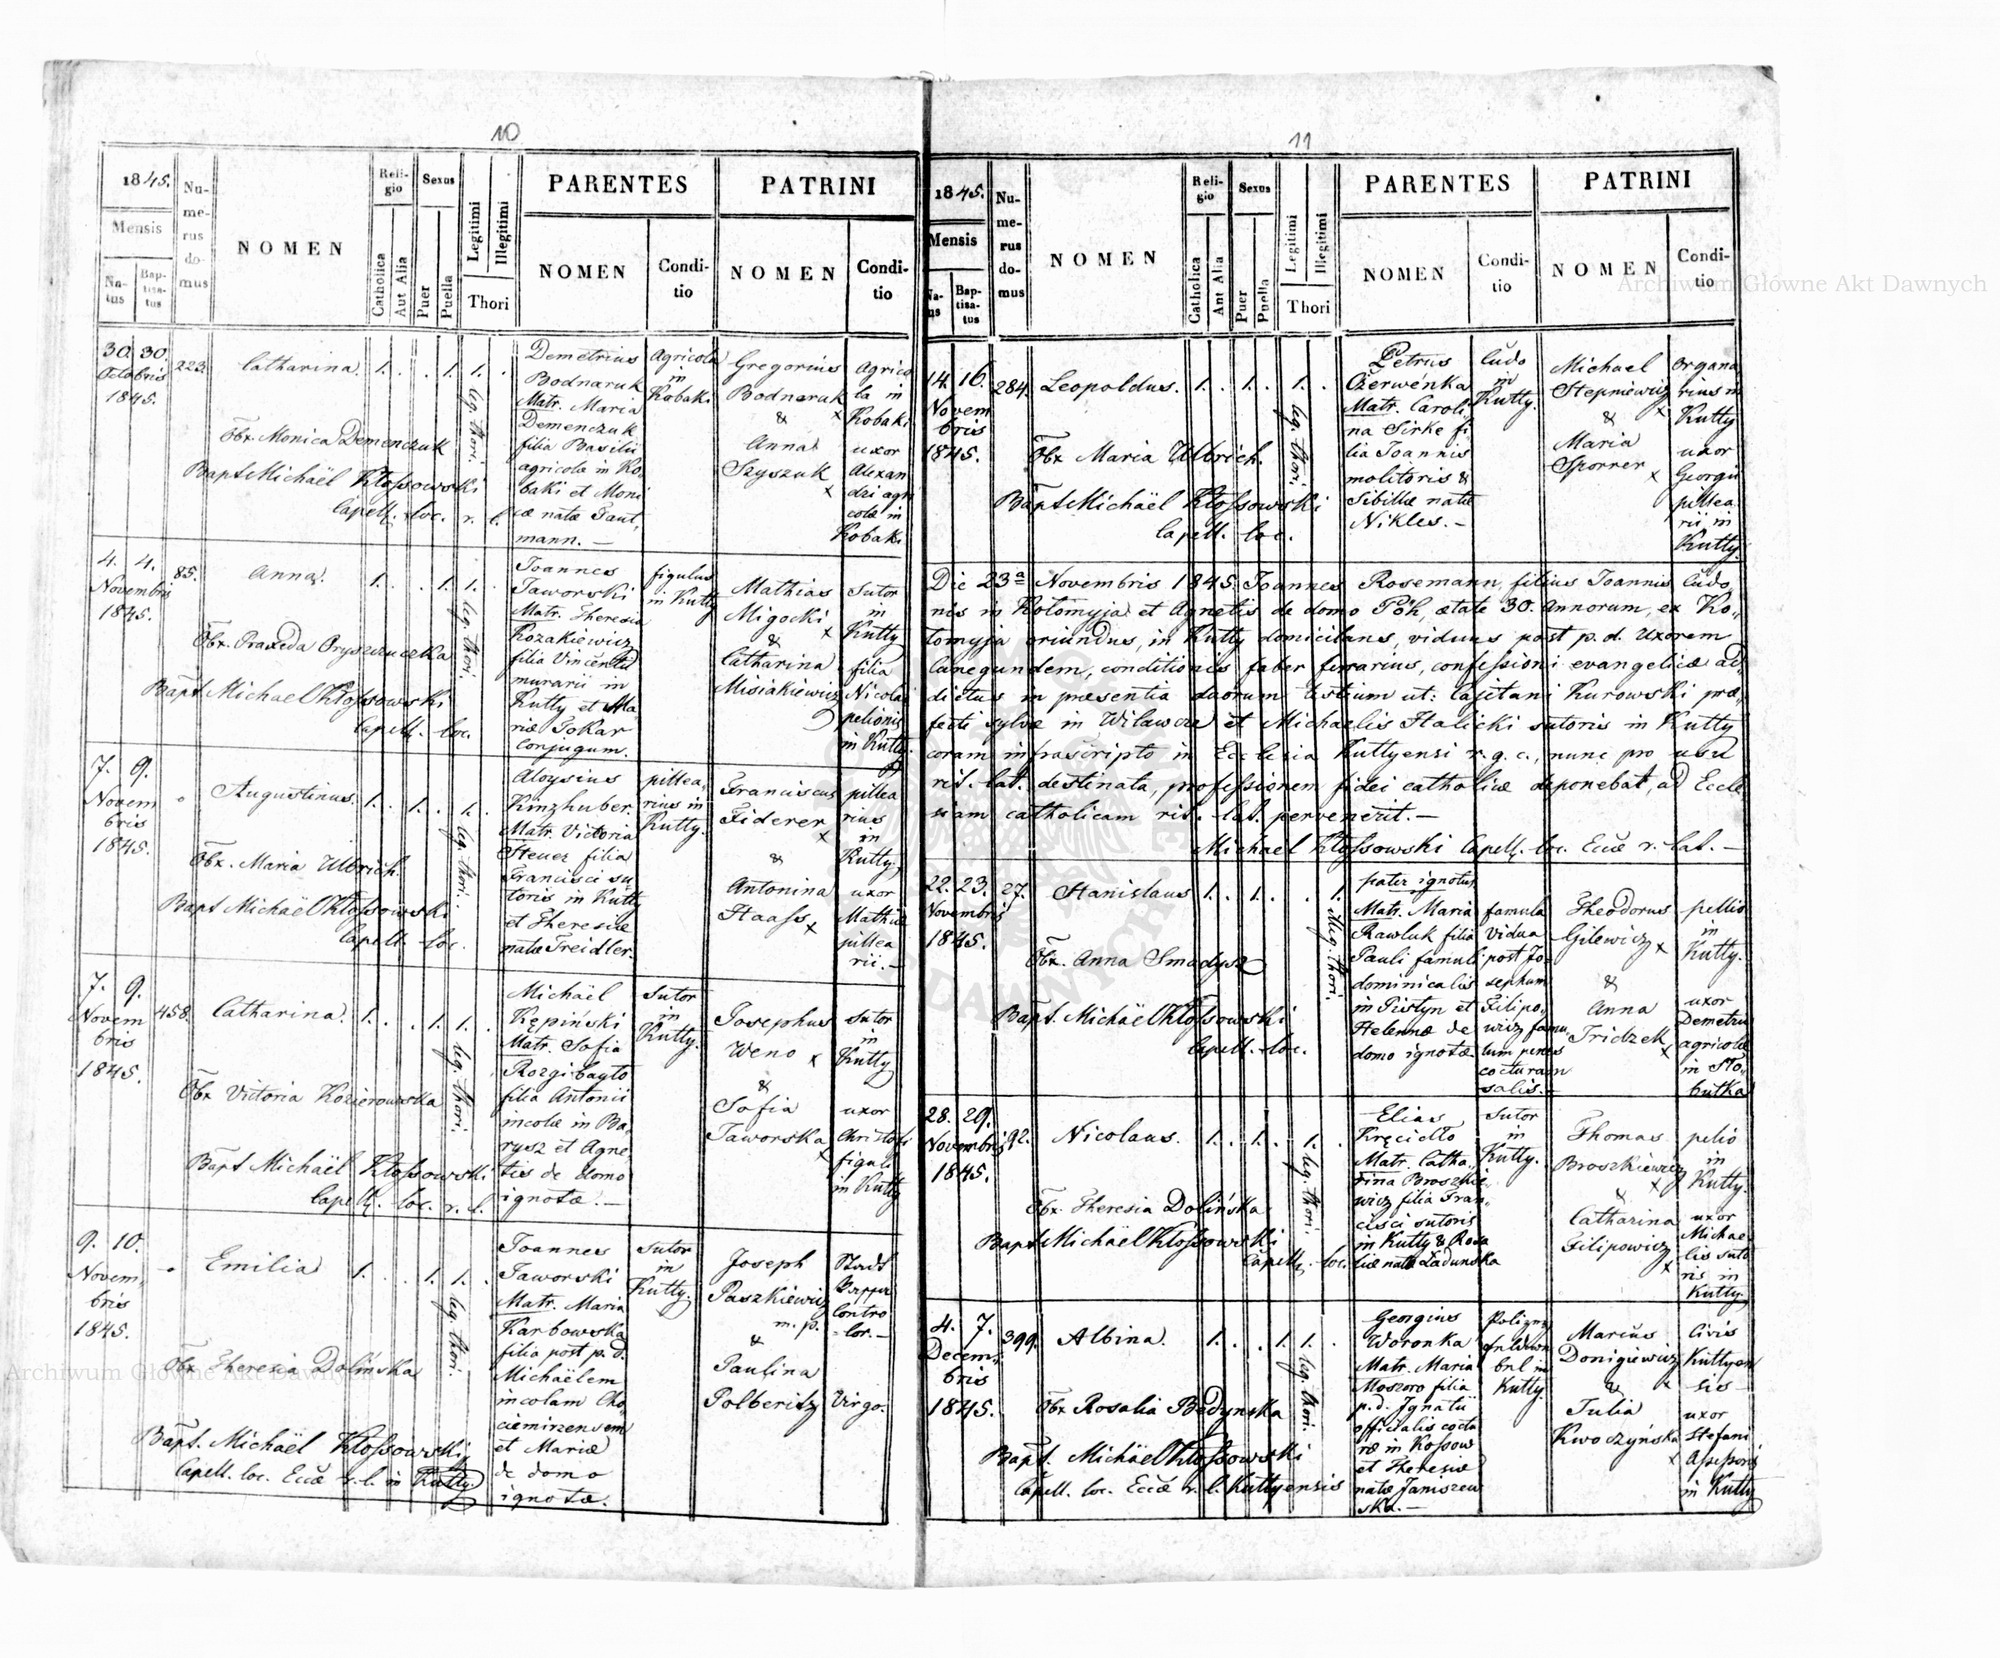 10
1845.
Mensis
Na-
tus
Bap-
tisa-
tus
Nu-
me-
rus
do-
mus
NOMEN
Reli-
gio
Catholica
Aut Alia
Sexus
Puer
Puella
Legitimi
Illegitimi
Thori
PARENTES
NOMEN
Condi-
tio
PATRINI
NOMEN
Condi-
tio
30. 30.
Octobris
1845.
223.
Catharina.
1. . . 1. 1. .
leg. thori.
Obx. Monica Demenczuk
Bapt Michaël Kłossowski
Capell. loc. r. l.
Demetrius
Bodnaruk
Matr. Maria
Demenczuk
filia Basilii
agricolæ in Ko
baki et Moni
cæ natæ Taut,
mann. —
Agricola
in
Kobaki
Gregorius
Bodnaruk
& x
Anna
Szyszuk
x
Agrico
la in
Kobaki
uxor
Alexan
dri agri
colæ in
Kobaki
4. 4.
Novembris
1845.
85.
Anna.
1. . . 1. 1.
leg. thori.
Obx. Praxeda Oryszczuczka
Bapt. Michael Kłossowski
Capell. loc.
Joannes
Jaworski
Matr. Theresia
Kozakiewicz
filia Vincentii
murarii in
Kutty et Ma
riæ Tokar
conjugum.
figulus
in Kutty
Mathias
Migocki
& x
Catharina
Misiakiewicz
Sutor
in
Kutty
filia
Nicolai
pelionis
in Kutty.
7. 9.
Novem
bris
1845.
Augustinus.
1. . 1. . 1.
leg. thori.
Obx. Maria Ulbrich.
Bapt Michaël Kłossowski
Capell. loc.
Aloysius
Kinzhuber.
Matr. Victoria
Steuer filia
Francisci su
toris in Kutty
et Theresiæ
natæ Treidler.
pillea,
rius in
Kutty.
Franciscus
Fiderer
x
&
Antonina
Haass x
pillea
rius
in
Kutty.
uxor
Mathiæ
pillea
rii. —
7. 9.
Novem
bris
1845.
458.
Catharina.
1. . . 1. 1. .
leg. thori.
Obx Victoria Kozierowska
Bapt Michaël Kłossowski
Capell. loc. r. l.
Michaël
Kępiński
Matr. Sofia
Rozgibayło
filia Antonii
incolæ in Ba,
rysz et Agne
tis de domo
ignotæ. —
Sutor
in
Kutty.
Josephus
Weno x
&
Sofia
Jaworska
x
sutor
in
Kutty
uxor
Christofi
figuli
in Kutty
9. 10.
Novem,
bris
1845.
Emilia
1. . . 1. 1. .
leg. thori.
Obx Theresia Dolińska
Bapt. Michaël Kłossowski,
Capell. loc. Eccæ r. l. in Kutty.
Joannes
Jaworski
Matr. Maria
Karbowska
filia post p. d.
Michaëlem
incolam Cho
cimirzensem
et Mariæ
de domo
ignotæ.
Sutor
in
Kutty.
Joseph
Paszkiewicz
m. p.
&
Paulina
Polberitz
Contro
lor. —
Virgo.
11
1845.
Mensis
Na-
us
Bap-
tisa-
tus
Nu-
me-
rus
do-
mus
NOMEN
Reli-
gio
Catholica
Ant Alia
Sexus
Puer
Puella
Legitimi
Illegitimi
Thori
PARENTES
NOMEN
Condi-
tio
PATRINI
NOMEN
Condi-
tio
14. 16.
Novem
bris
1845.
284.
Leopoldus.
1. . 1. . 1. .
leg. thori.
Obx Maria Ulbrich.
Bapt Michaël Kłossowski
Capell. loc.
Petrus
Czerwénka
Matr. Caroli
na Sirke fi
lia Joannis
molitoris &
Sibillæ natæ
Nikles. —
Cŭdo
in
Kutty.
Michael
Stepniewicz
& x
Maria
Sporrer x
Organa
rius in
Kutty
uxor
Georgii
pillea
rii in
Kutty.
Die 23ª Novembris 1845. Joannes Rosemann, filius Joannis cŭdo,
nis in Kołomyja et Agnetis de domo Pŏk, ætate 30. Annorum, ex Ko,,
łomyja oriundus, in Kutty domicilans, viduus post p. d. Uxorem
Canegundem, conditionis faber ferrarius, confessioni evangelicæ ad,,
dictus in præsentia duorum testium ut: Cajetani Kurowski præ,
fecti sylvæ in Wilawcze et Michaelis Halicki sutoris in Kutty
coram infrascripto in Ecclesia Kuttyensi r. g. c., nunc pro usu
rit. lat. destinata, professionem fidei catholicæ deponebat, ad Eccle
siam catholicam rit. lat. pervenerit. —
Michael Kłossowski Capell. loc. Eccæ r. lat. —
22. 23.
Novembris
1845.
27.
Stanislaus
1. . 1. . . 1.
illeg. thori.
Obx. Anna Smadysz
Bapt. Michaël Kłossowski
Capell. loc.
pater ignotus
Matr. Maria
Rawluk filia
Pauli famuli
dominicalis
in Pistyn et
Helennæ de
domo ignotæ
famula
vidua
post Jo-
sephum
Filipo,
wicz famu,
lum penes
cocturam
salis. —
Theodorus
Gilewicz x
&
Anna
Tridzek
x
pellio
in
Kutty.
uxor
Demetrii
agricolæ
in Sło,
butka
28. 29.
Novembris
1845.
92.
Nicolaus.
1. . 1. . 1. .
leg. thori.
Obx. Theresia Dolińska
Bapt Michaël Kłossowski
Capell. loc.
Elias
Kręciłło
Matr. Catha,
rina Broszkie,
wicz filia Fran,,
cisci sutoris
in Kutty & Rosa
liæ natæ Ładunska
Sutor
in
Kutty.
Thomas
Broszkiewicz
& x
Catharina
Filipowicz
x
pelio
in
Kutty.
uxor
Michae
lis suto
ris in
Kutty.
4. 7.
Decem,
bris
1845.
399.
Albina.
1. . . 1. 1. .
leg. thori.
Obx Rosalia Bedynska
Bapt. Michaël Kłossowski
Capell. loc. Eccæ r. l. Kuttyensis
Georgius
Woronka
Matr. Maria
Moszoro filia
p. d. Ignatii
officialis coctu
ræ in Kossow
et Theresiæ
natæ Janiszew
ska. —
Kutty.
Marius
Donigiewicz
& x
Julia
Kwoczyńska
x
Civis
Kuttyen
sis —
uxor
Stefani
Assessoris
in Kutty
Archiwum Główne Akt Dawnych
Archiwum Główne Akt Dawnych